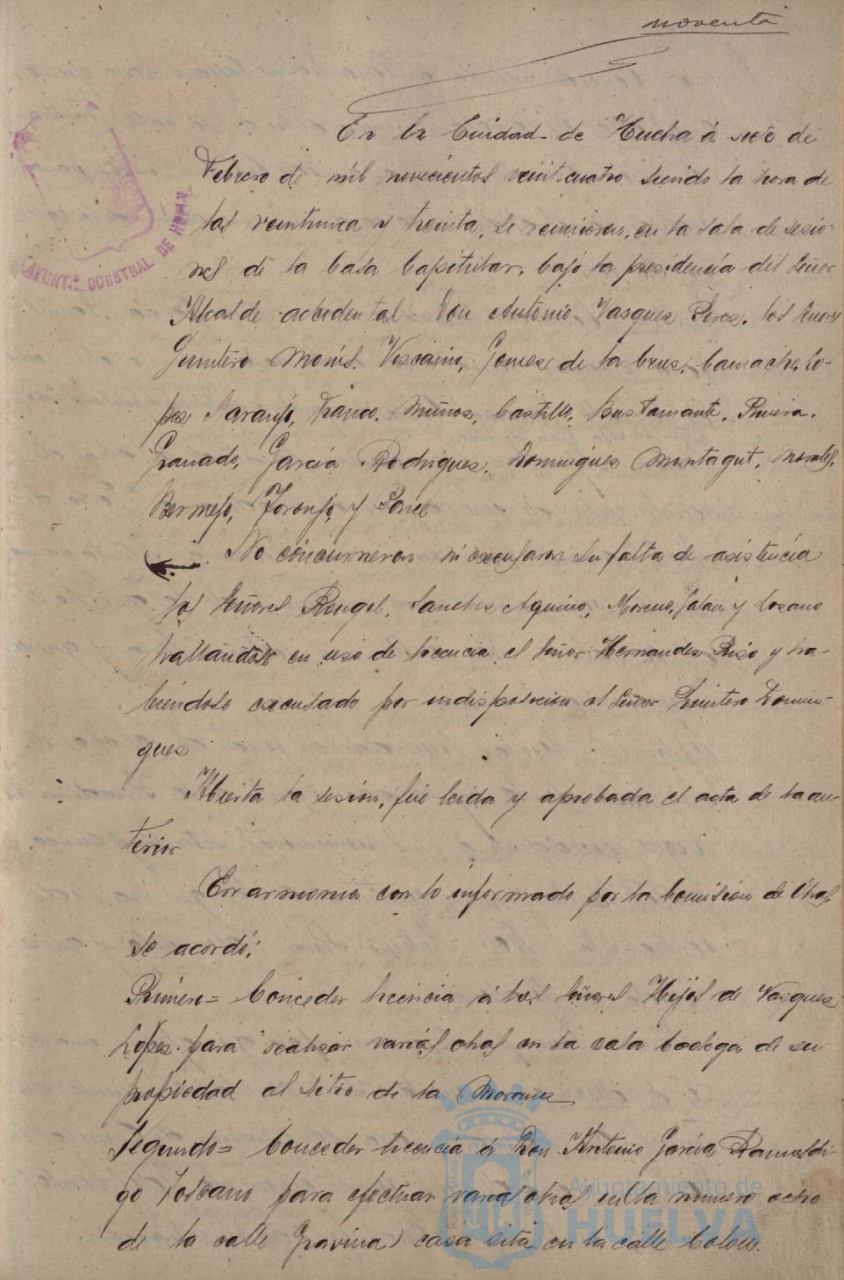 noventa
En la Ciudad de Huelva á siete de
Febrero de mil novecientos veinticuatro siendo la hora de
las veintiuna y treinta, se reunieron, en la sala de sesio-
nes de la Casa Capitular, bajo la presidencia del Señor
Alcalde accidental Don Antonio Vasquez Perez, los Señores
Quintero Monís, Viscaino, Gomez de la Cruz, Camacho, Lo-
pez Naranjo, Franco, Muñoz, Castilla, Bustamante, Rivera,
Granado, García Rodriguez, Dominguez Montagut, Morales,
Bermejo, Toronjo, y Ponce
No concurrieron ni excusaron su falta de asistencia
los Señores Rengel, Sanchez Aquino, Moreno, Galan y Lozano
hallandose en uso de licencia el Señor Hernandez Piso y ha-
biendolo excusado por indisposicion el Señor Quintero Domin-
guez
Abierta la sesión, fue leida y aprobada el acta de la an-
terior
En armonia con lo informado por la Comision de Obras
se acordó:
Primero= Conceder licencia á los Señores Hijos de Vasquez
Lopez para realizar varias obras en la casa bodega de su
propiedad al sitio de la Morana
Segundo= Conceder licencia á Don Antonio García Ramos
Toscano para efectuar varias obras en la numero ocho
de la calle Gravina) casa sita en la calle Colon.
AYUNT.º CONSTNAL DE HUELVA
Ayuntamiento de
HUELVA